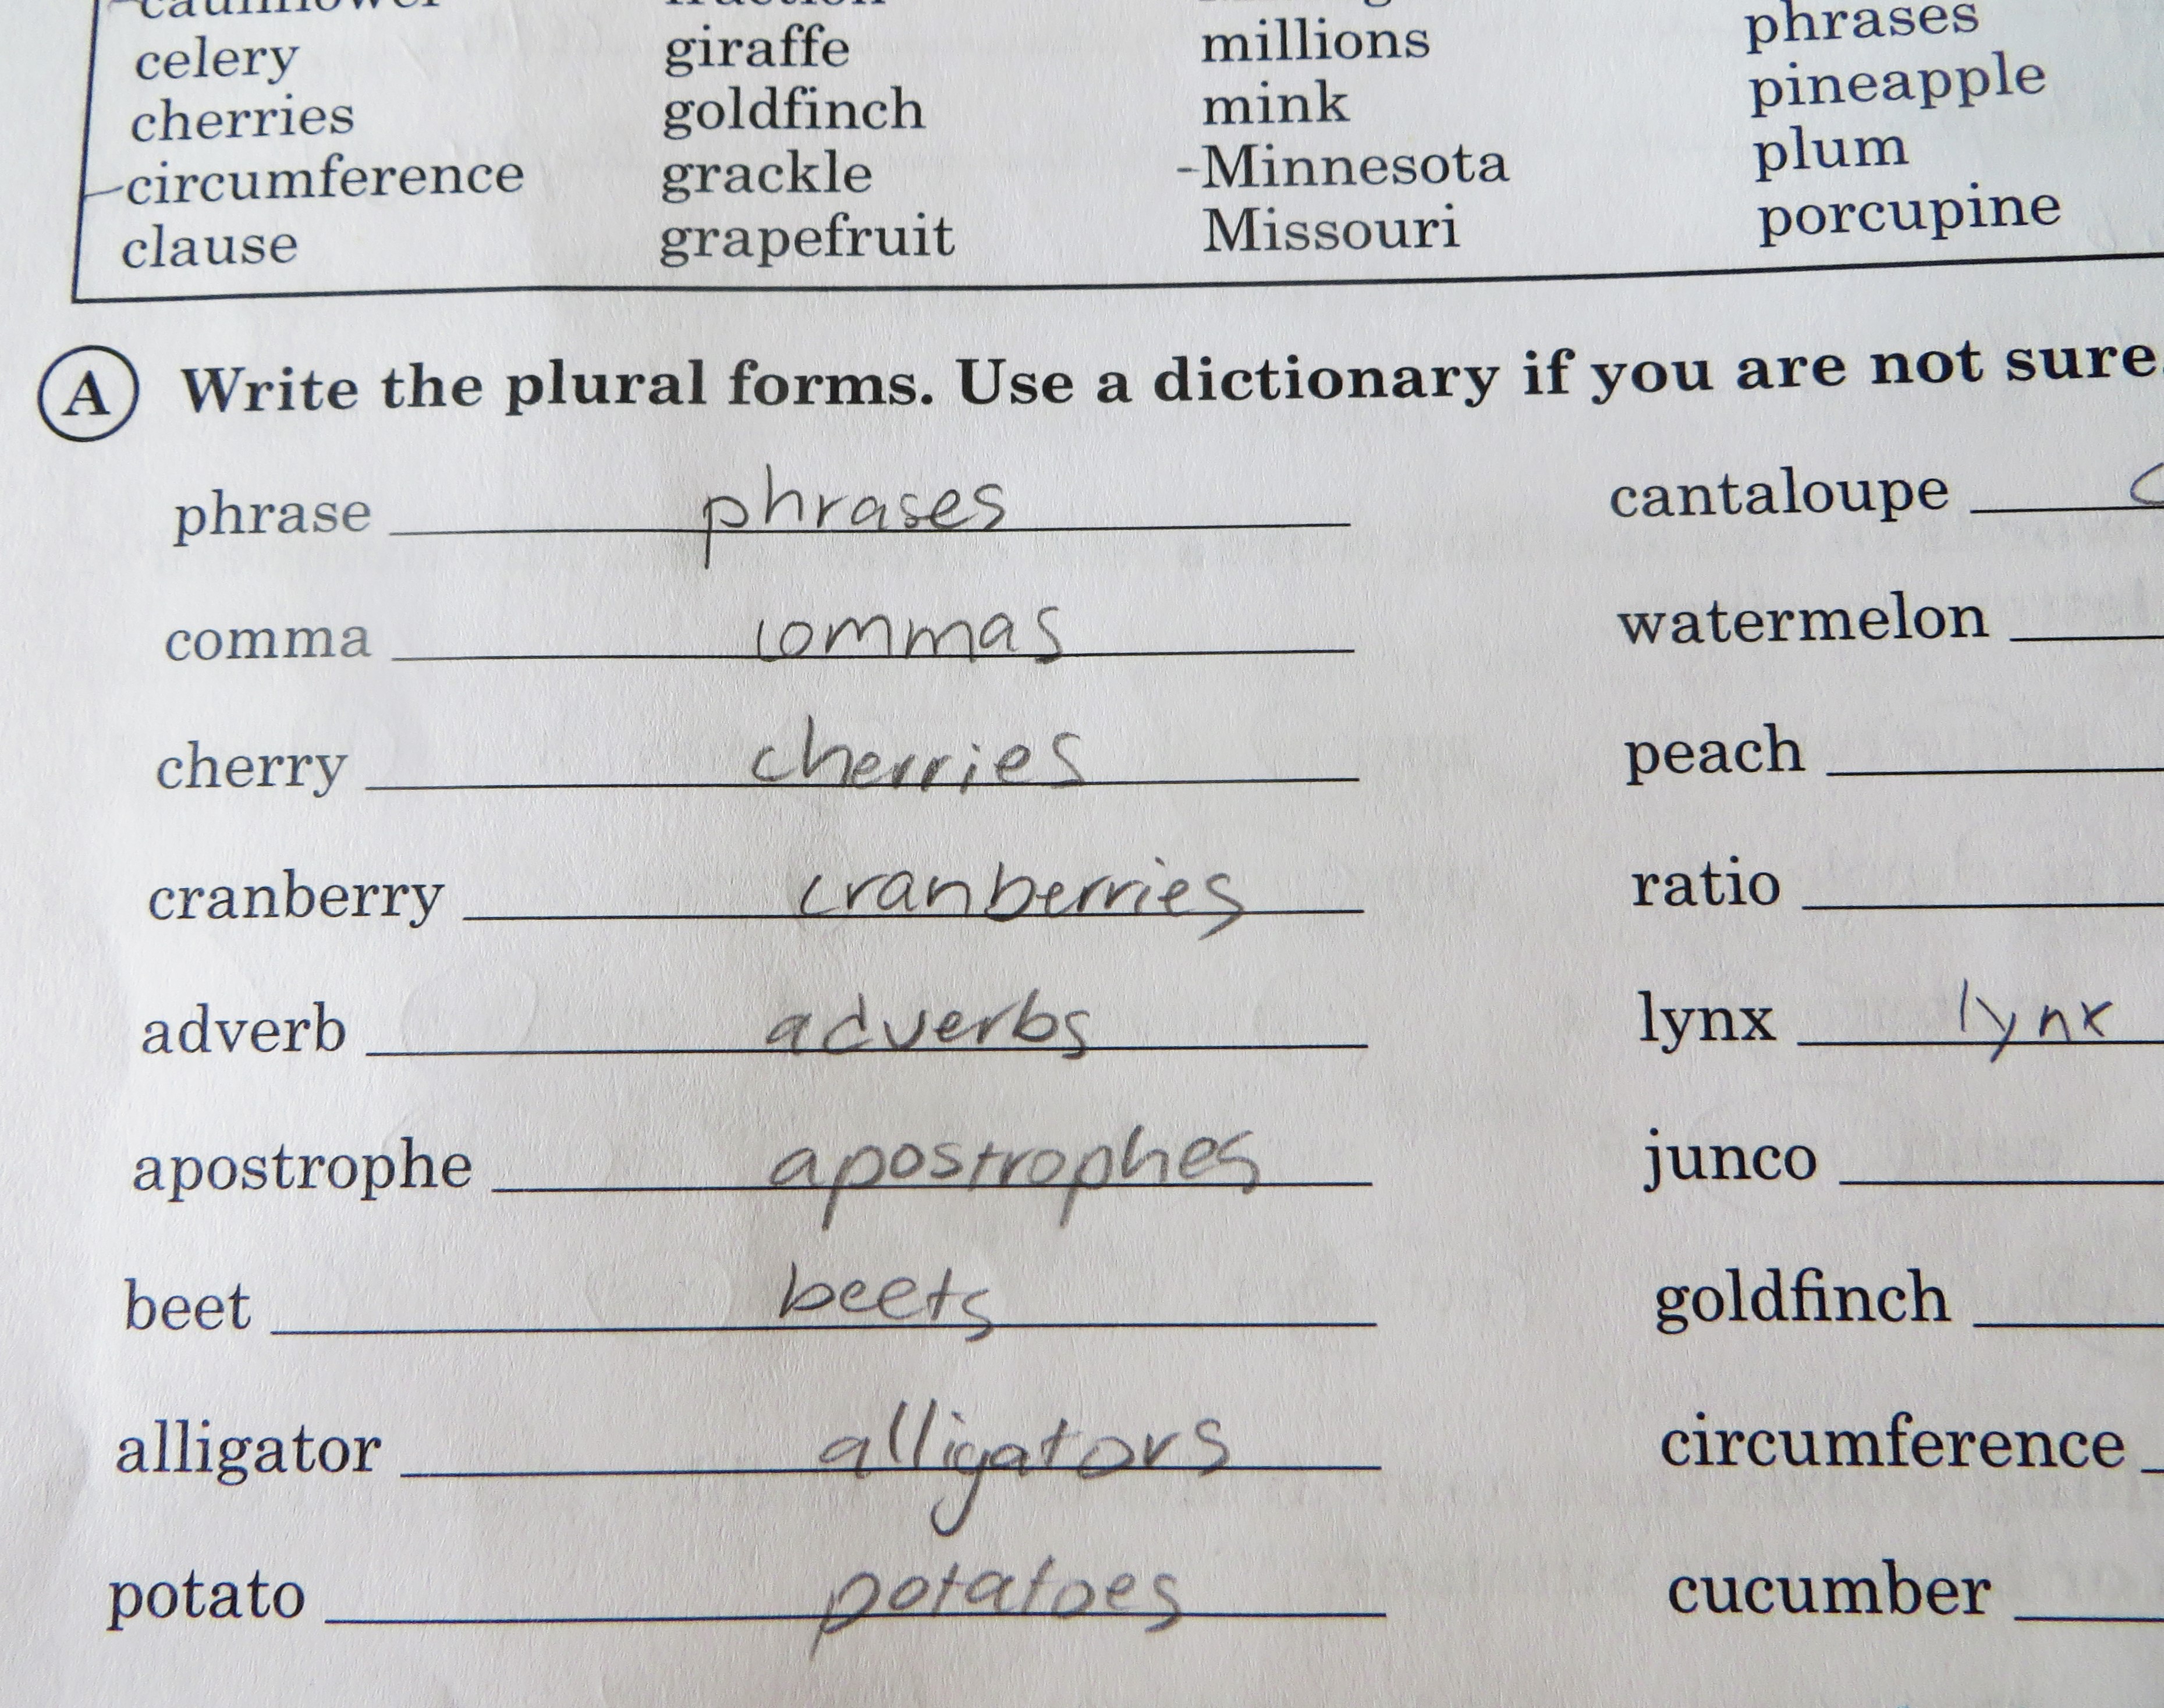 celery giraffe millions phrases
cherries goldfinch mink pineapple
circumference grackle -Minnesota plum
clause grapefruit Missouri porcupine
A Write the plural forms. Use a dictionary if you are not sure.
phrase phrases cantaloupe
comma commas watermelon
cherry cherries peach
cranberry cranberries ratio
adverb adverbs lynx lynx
apostrophe apostrophes junco
beet beets goldfinch
alligator alligators circumference
potato potatoes cucumber